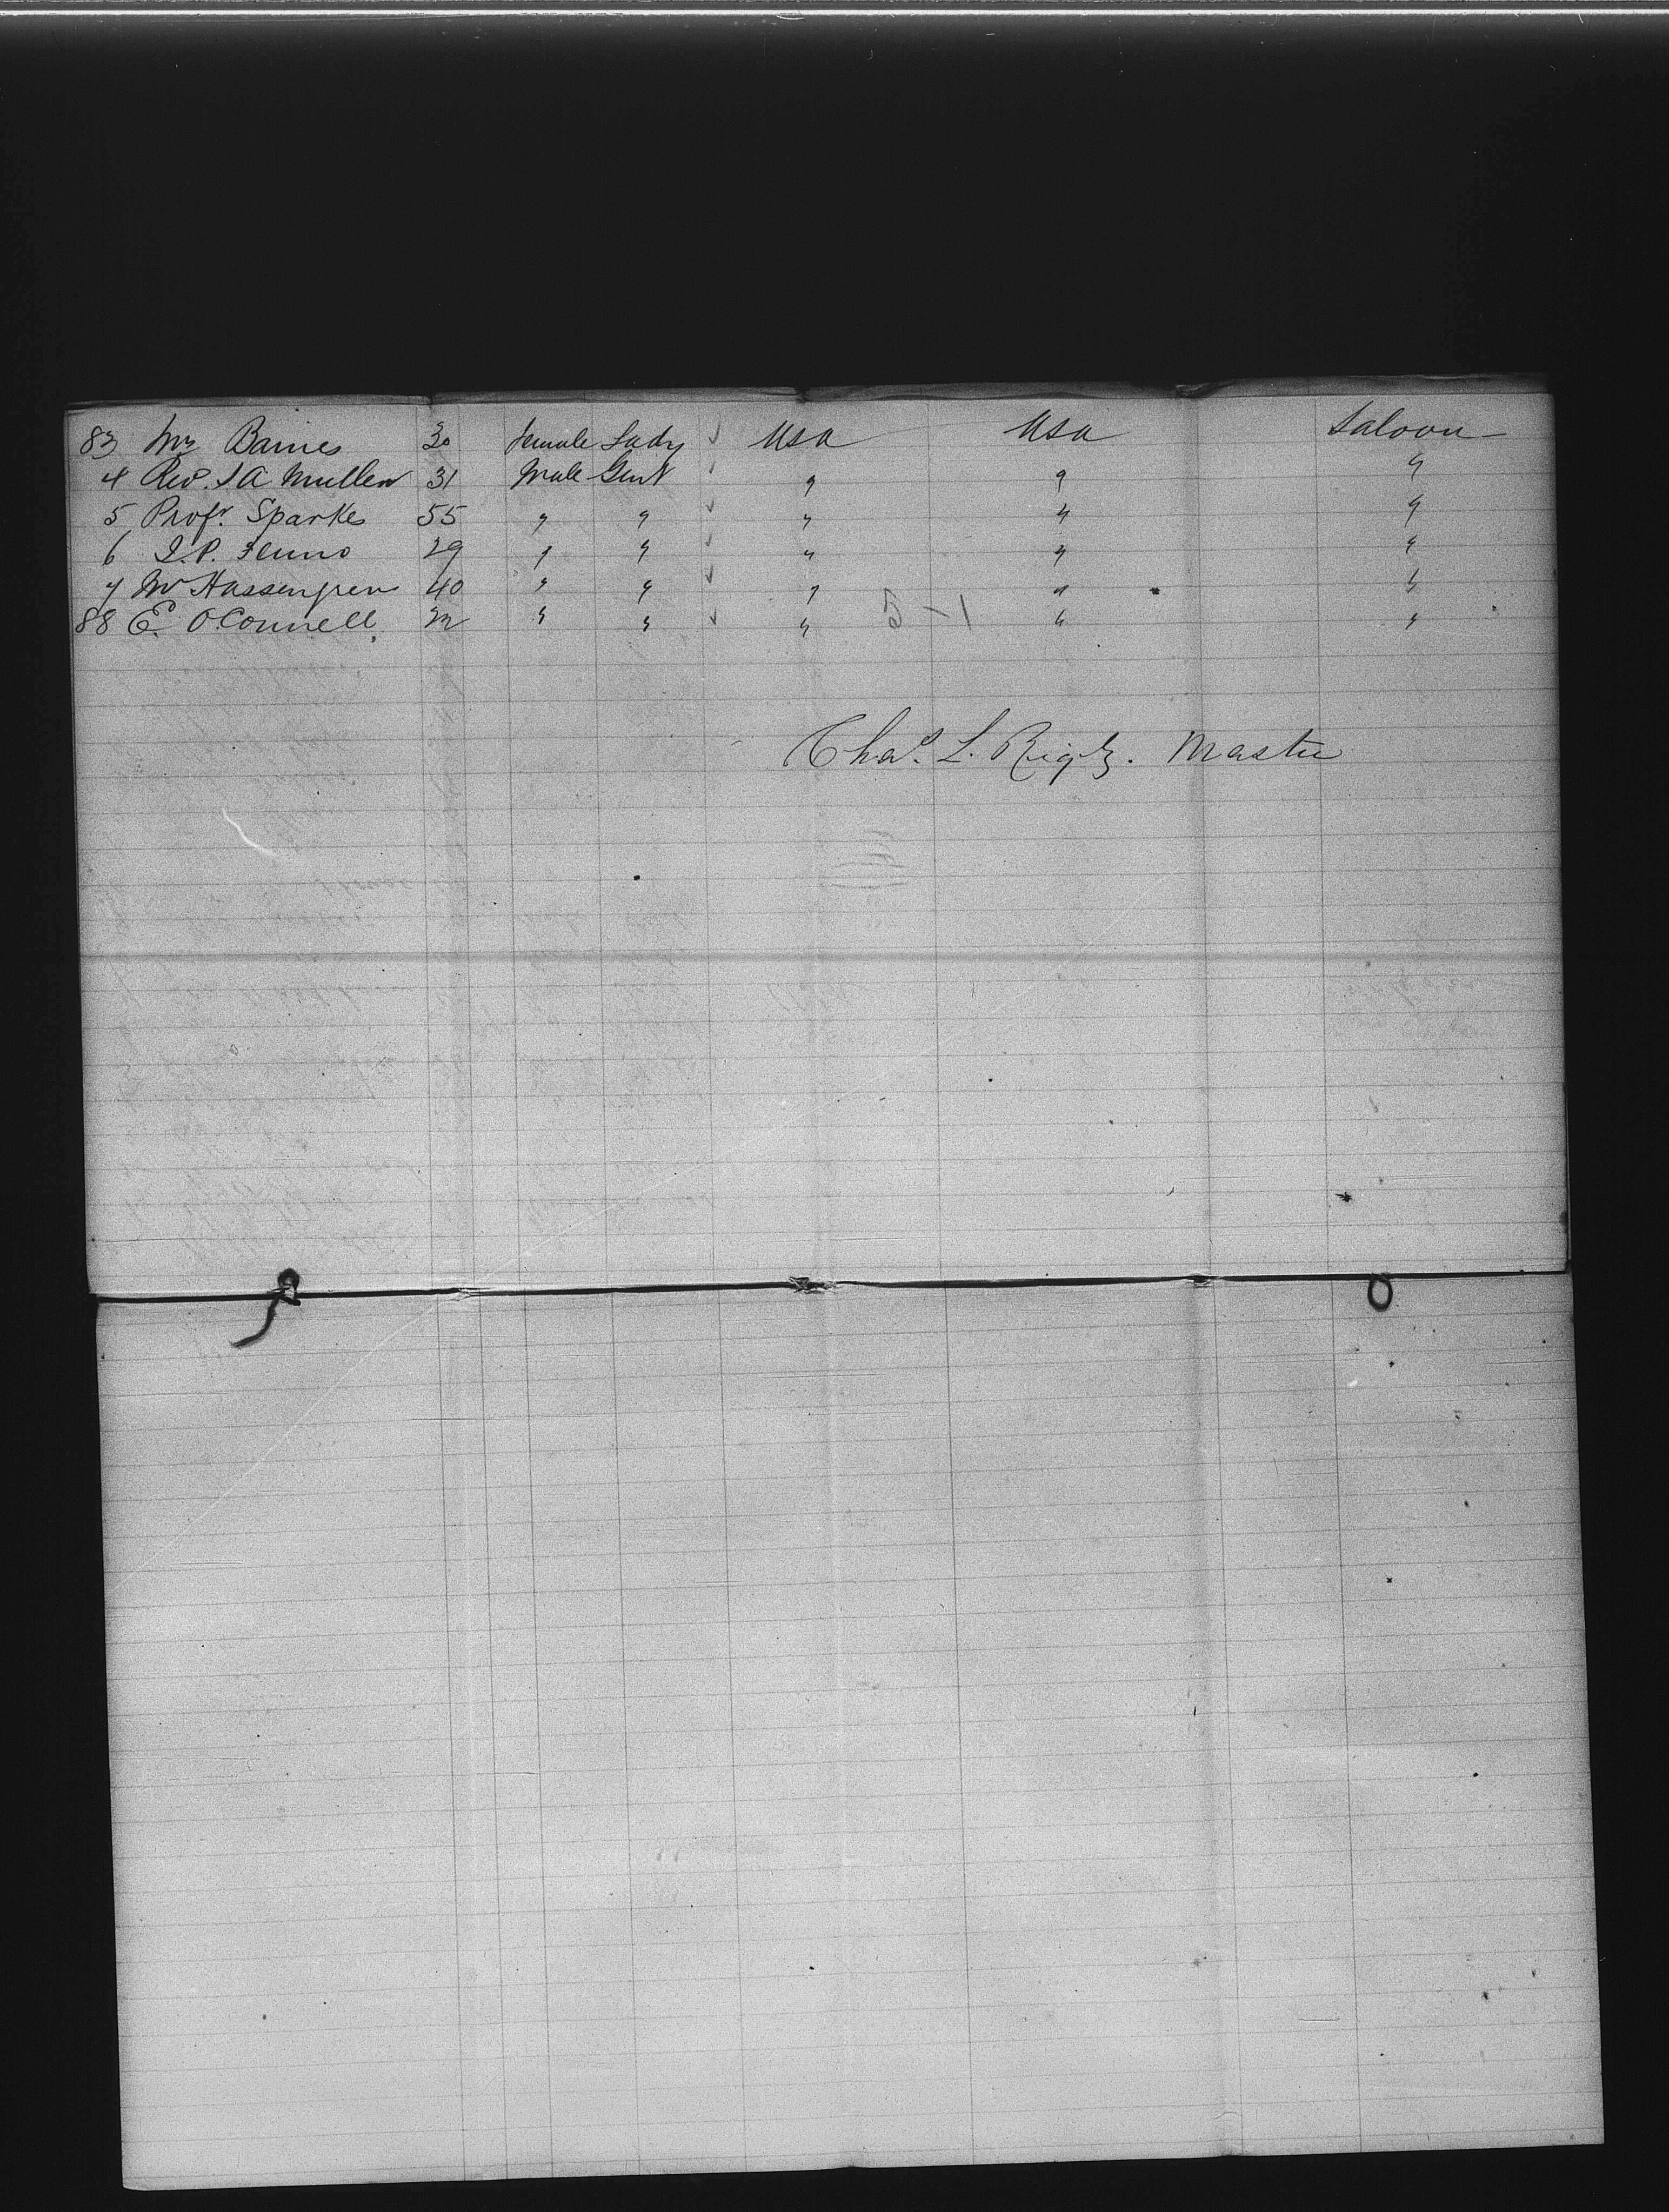 83 Mrs Barnes 30 Female Lady ✓ USA USA Saloon
4 Rev. J A Mullen 31 Male Gent ✓ " " "
5 Profr. Sparkes 55 " " ✓ " " "
6 J.P. Fenno 29 " " ✓ " " "
7 Mr 40 " " ✓ " " "
88 E. O'Connell 22 " " ✓ " 5-1 " "
Chas. L. Master